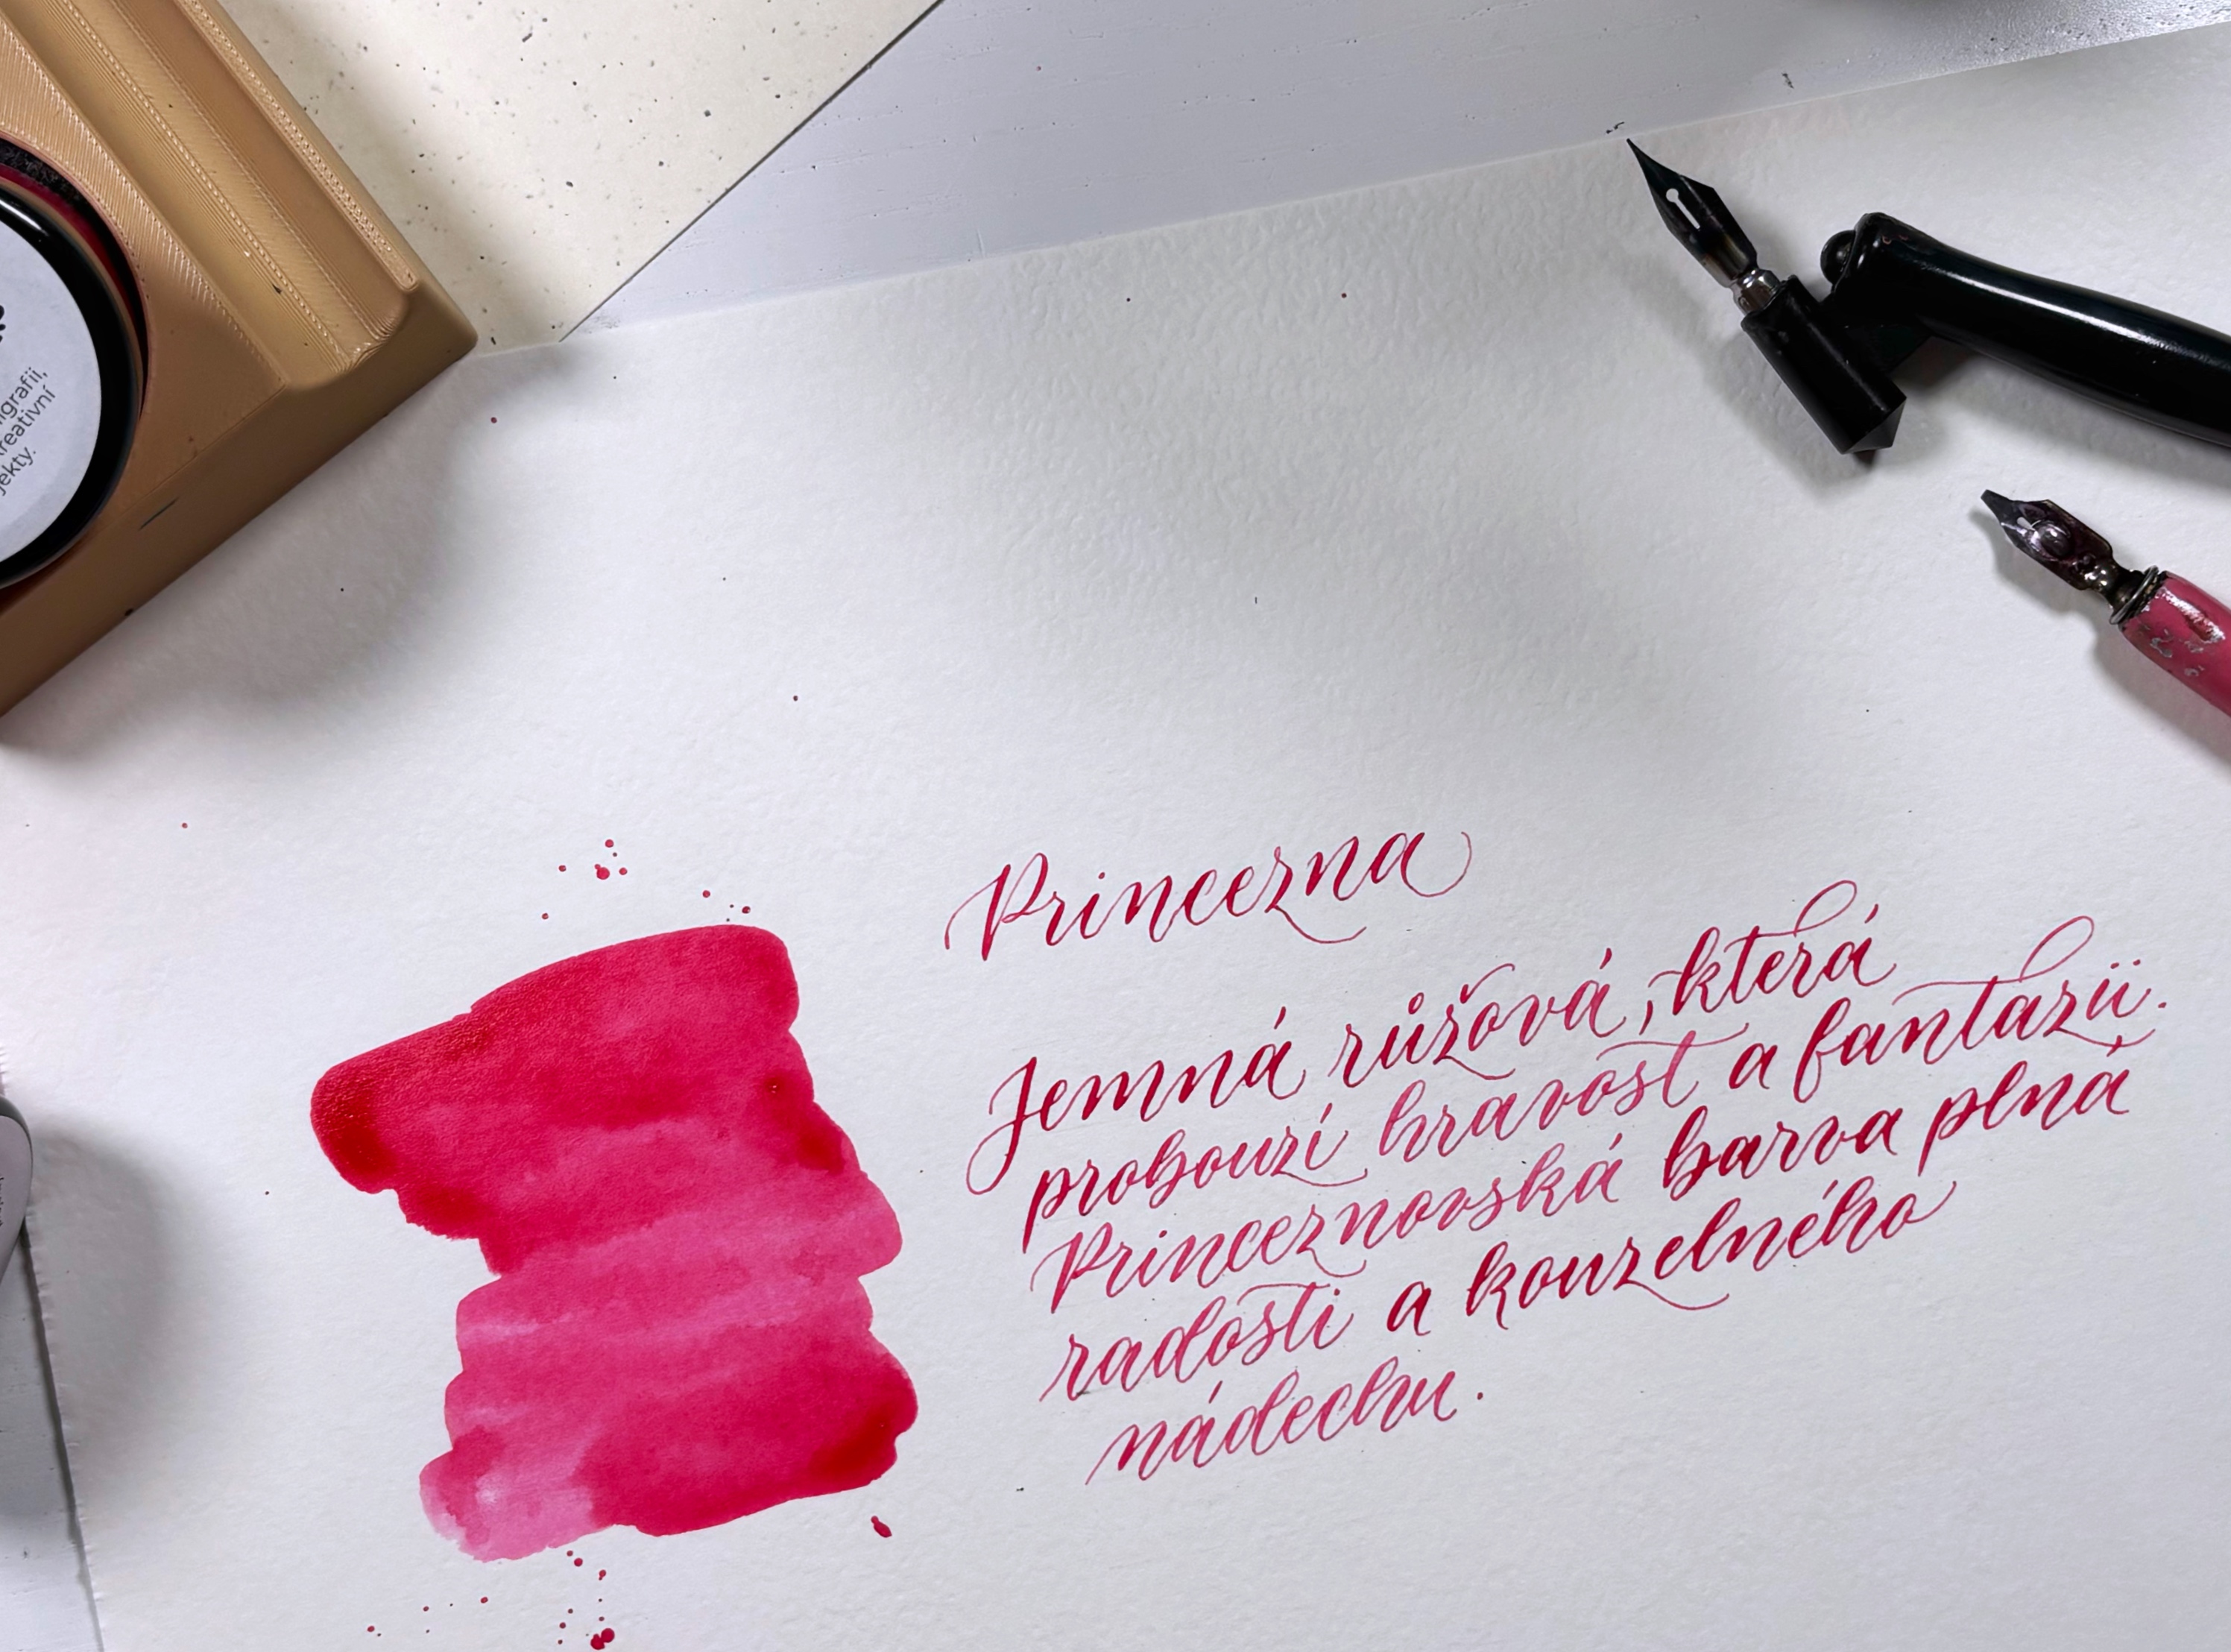 Princezna
Jemná růžová, která
probouzí hravost a fantazii.
Princeznovská barva plná
radosti a kouzelného
nádechu.